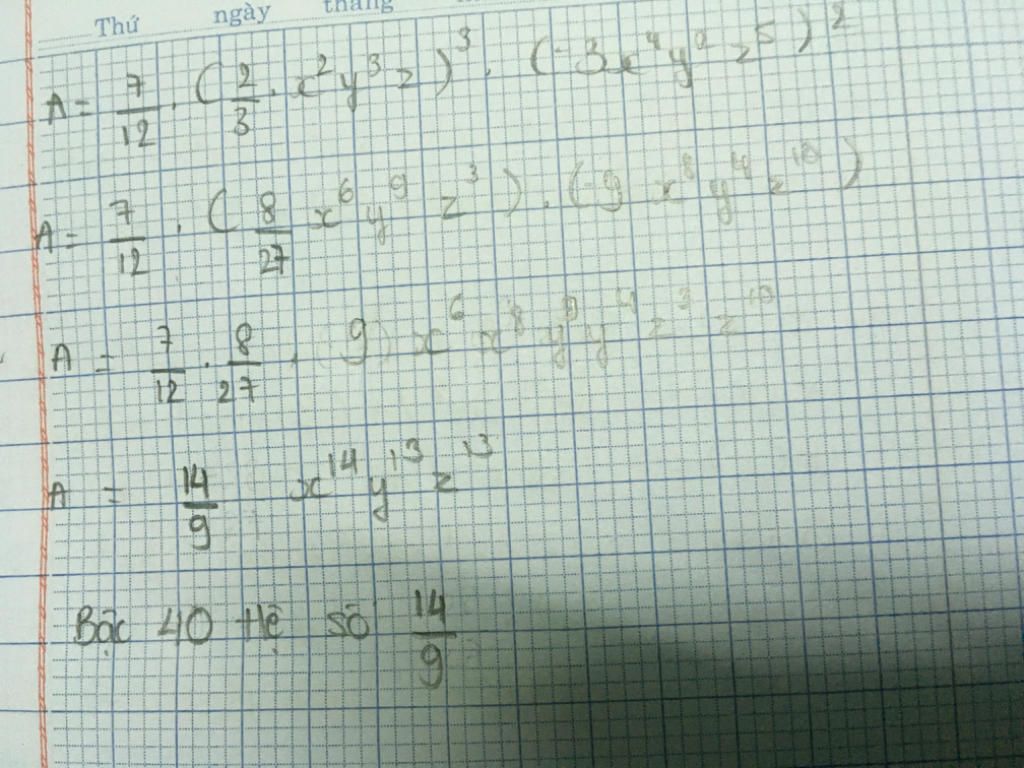 Thứ ngày tháng
A = 7/12 . (2/3 . x²y³z)³ . (-3x⁴y²z⁵)²
A = 7/12 . (8/27 x⁶y⁹z³) . (-9 x⁸y⁴z¹⁰)
A = 7/12 . 8/27 . (9) x⁶x⁸y⁹y⁴z³z¹⁰
A = 14/9 x¹⁴y¹³z¹³
Bậc 40 Hệ số 14/9